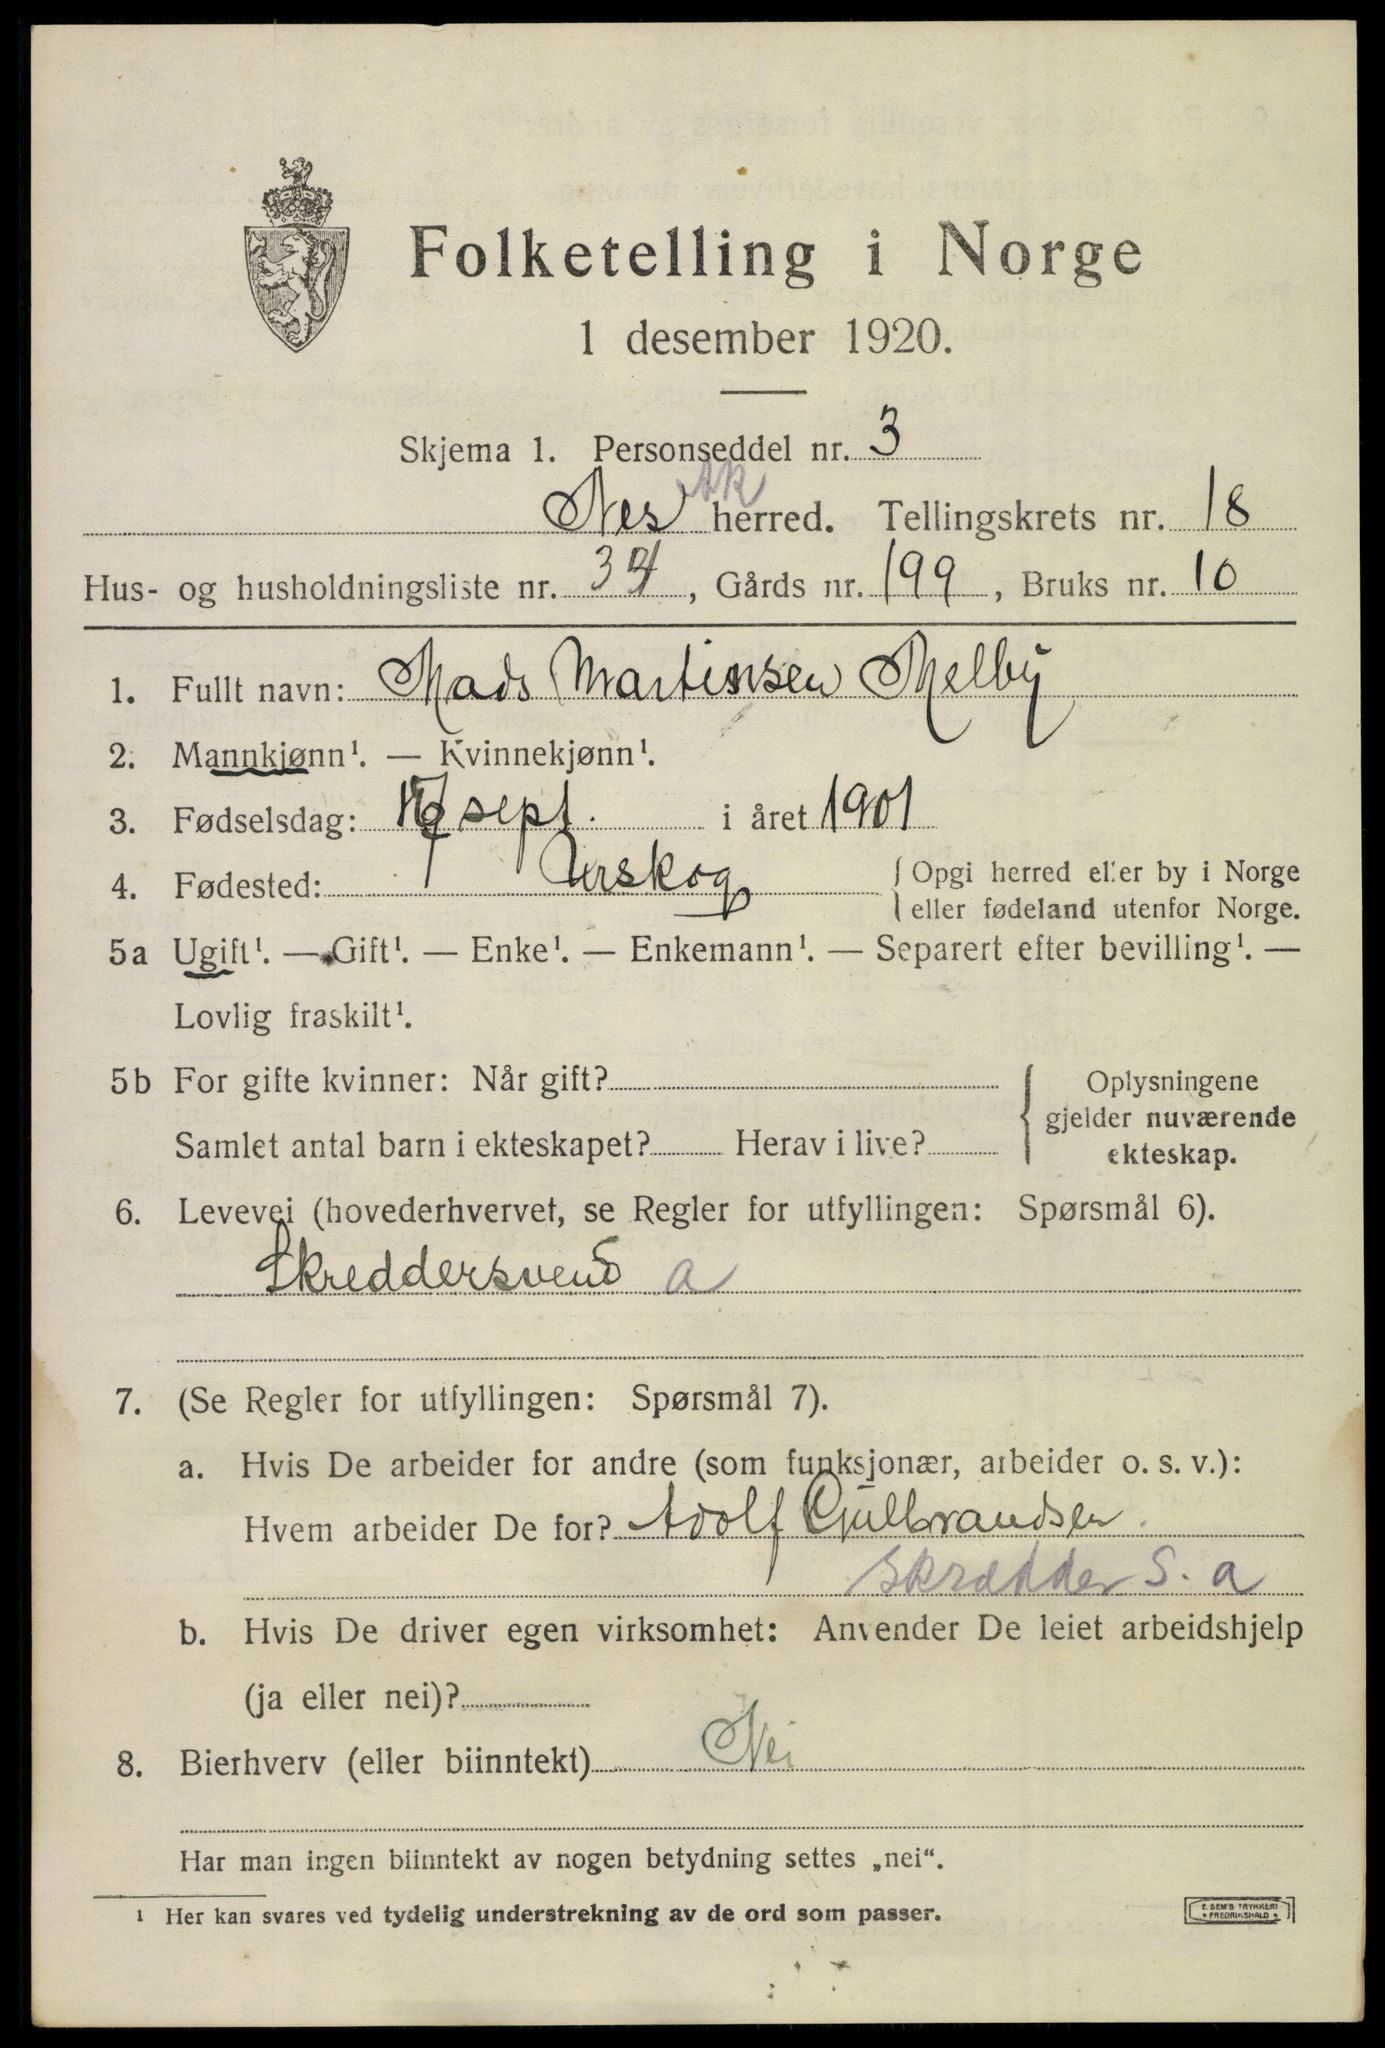 Folketelling i Norge
1 desember 1920.
Skjema 1. Personseddel nr. 3
Nes Ak herred. Tellingskrets nr. 18
Hus- og husholdningsliste nr. 34, Gårds nr. 199, Bruks nr. 10
1. Fullt navn: Mads Martinsen Melby
2. Mannkjønn¹. — Kvinnekjønn¹.
3. Fødselsdag: sept. i året 1901
4. Fødested: Urskog {Opgi herred eller by i Norge
eller fødeland utenfor Norge.
5a Ugift¹. — Gift¹. — Enke¹. — Enkemann¹. — Separert efter bevilling¹. —
Lovlig fraskilt¹.
5b For gifte kvinner: Når gift? { Oplysningene
gjelder nuværende
Samlet antal barn i ekteskapet? Herav i live? ekteskap.
6. Levevei (hovederhvervet, se Regler for utfyllingen: Spørsmål 6).
Skreddersvend a
7. (Se Regler for utfyllingen: Spørsmål 7).
a. Hvis De arbeider for andre (som funksjonær, arbeider o. s. v.):
Hvem arbeider De for? Adolf Gulbrandsen.
skrædder S. a
b. Hvis De driver egen virksomhet: Anvender De leiet arbeidshjelp
(ja eller nei)?
8. Bierhverv (eller biinntekt) Nei
Har man ingen biinntekt av nogen betydning settes „nei“.
¹ Her kan svares ved tydelig understrekning av de ord som passer.
E. SEM'S TRYKKERI
FREDRIKSHALD